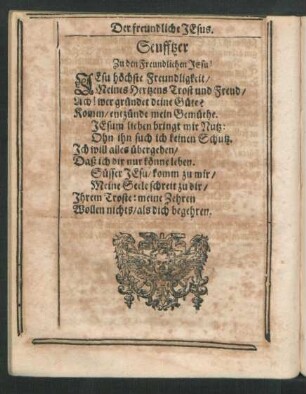 Der freundliche JEsus.
Seufftzer
Zu den Freundlichen JEsu!
JEsu höchste Freundligkeit/
Meines Hertzens Trost und Freud/
Ach! wer gründet deine Güte?
Komm/ entzünde mein Gemüthe.
JEsum lieben bringt mir Nutz:
Ohn ihn such ich keinen Schutz.
Ich will alles übergeben/
Daß ich dir nur könne leben.
Süsser JEsu/ komm zu mir/
Meine Seele schreit zu dir/
Ihrem Troste: meine Zehren
Wollen nichts/ als dich begehren.